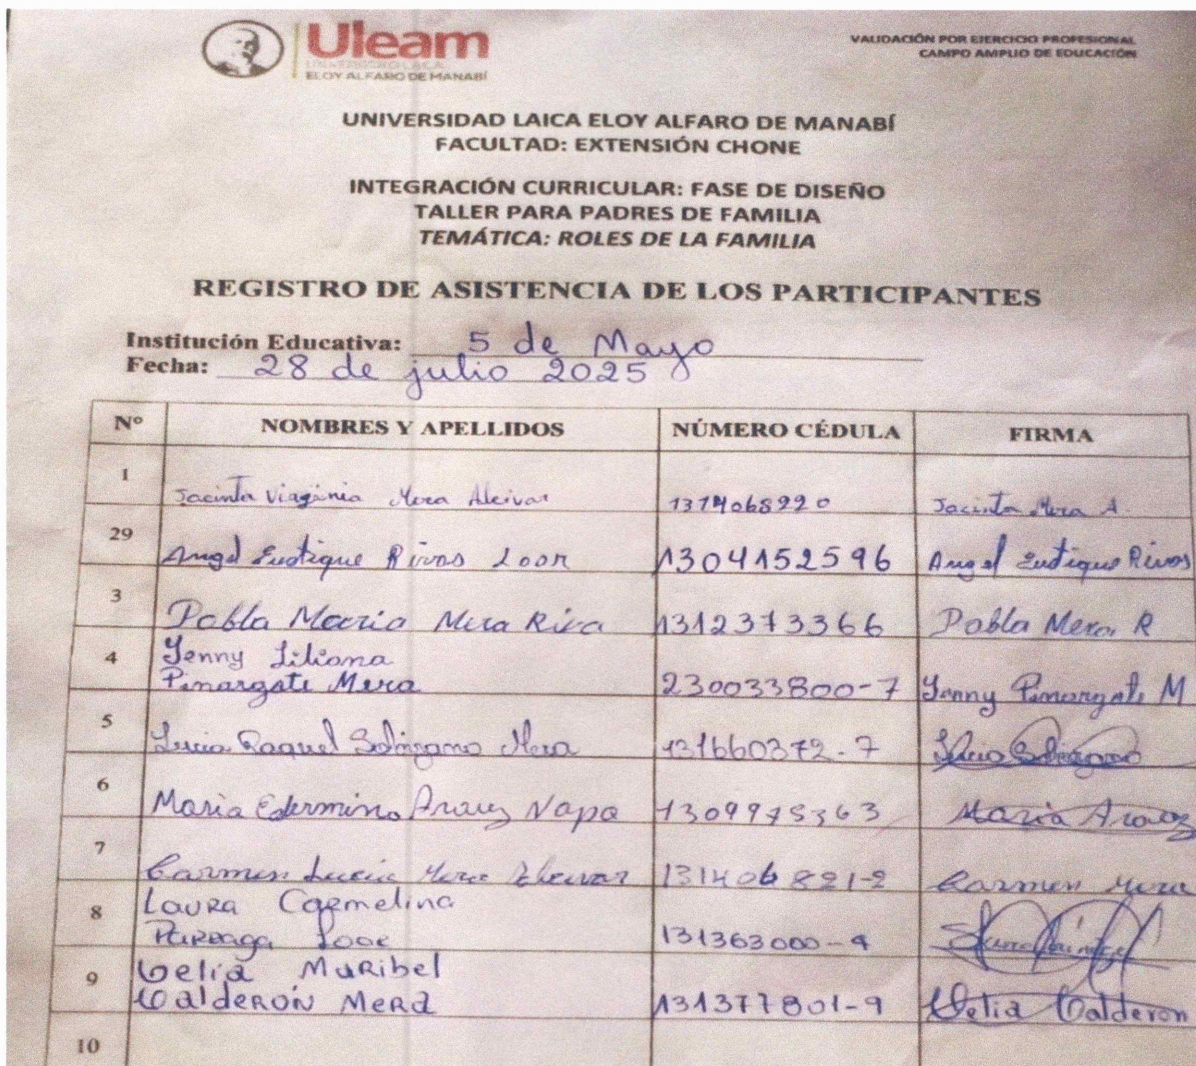 Uleam
UNIVERSIDAD LAICA
ELOY ALFARO DE MANABÍ
VALIDACIÓN POR EJERCICIO PROFESIONAL
CAMPO AMPLIO DE EDUCACIÓN
UNIVERSIDAD LAICA ELOY ALFARO DE MANABÍ
FACULTAD: EXTENSIÓN CHONE
INTEGRACIÓN CURRICULAR: FASE DE DISEÑO
TALLER PARA PADRES DE FAMILIA
TEMÁTICA: ROLES DE LA FAMILIA
REGISTRO DE ASISTENCIA DE LOS PARTICIPANTES
Institución Educativa: 5 de Mayo
Fecha: 28 de julio 2025
Nº NOMBRES Y APELLIDOS NÚMERO CÉDULA FIRMA
1 Jacinta Virginia Mera Alcivar 1314068220 Jacinta Mera A.
29 Angel Eutique Rivas Loor 1304152596 Angel Eutique Rivas
3 Pabla Maria Mera Riva 1312373366 Pabla Mera R
4 Yenny Liliana
Pinargote Mera 230033800-7 Yenny Pinargote M
5 Lucia Raquel Solorzano Mera 131660372-7 Lucia Solorzano
6 Maria Edermina Arauz Napa 1309975363 Maria Arauz
7 Carmen Lucia Mera Alcivar 131406821-2 Carmen Mera
8 Laura Carmelina
Parraga Loor 131363000-4
9 Celia Maribel
Calderón Mera 131377801-9 Celia Calderon
10